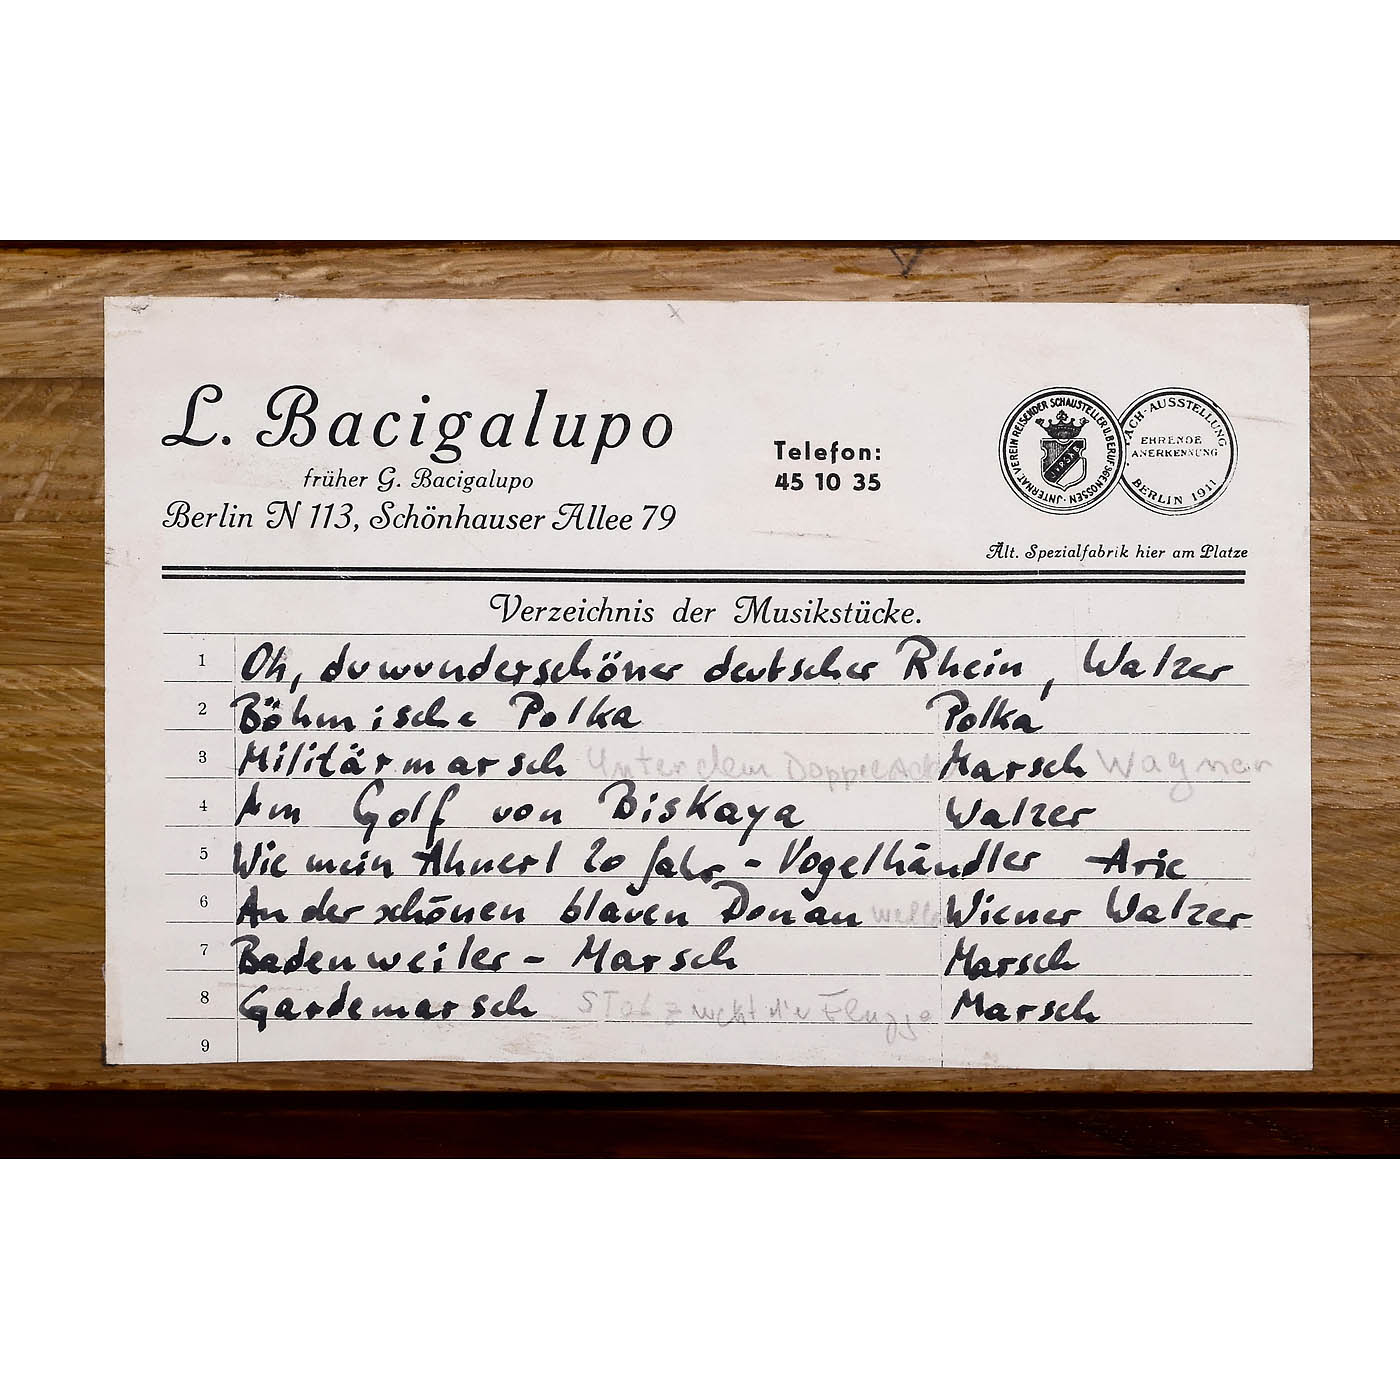 L. Bacigalupo
früher G. Bacigalupo
Berlin N 113, Schönhauser Allee 79
Telefon:
45 10 35
INTERNAT. VEREIN REISENDER SCHAUSTELLER U. BERUFSGENOSSEN
FACH-AUSSTELLUNG
EHRENDE
ANERKENNUNG
BERLIN 1911
Ält. Spezialfabrik hier am Platze
Verzeichnis der Musikstücke.
1 Oh, du wunderschöner deutscher Rhein, Walzer
2 Böhmische Polka Polka
3 Militärmarsch Unter dem Marsch Wagner
4 Am Golf von Biskaya Walzer
5 Wie mein Ahnerl 20 Jahr - Vogelhändler Arie
6 An der schönen blauen Donau Wiener Walzer
7 Badenweiler - Marsch Marsch
8 Gardemarsch Marsch
9